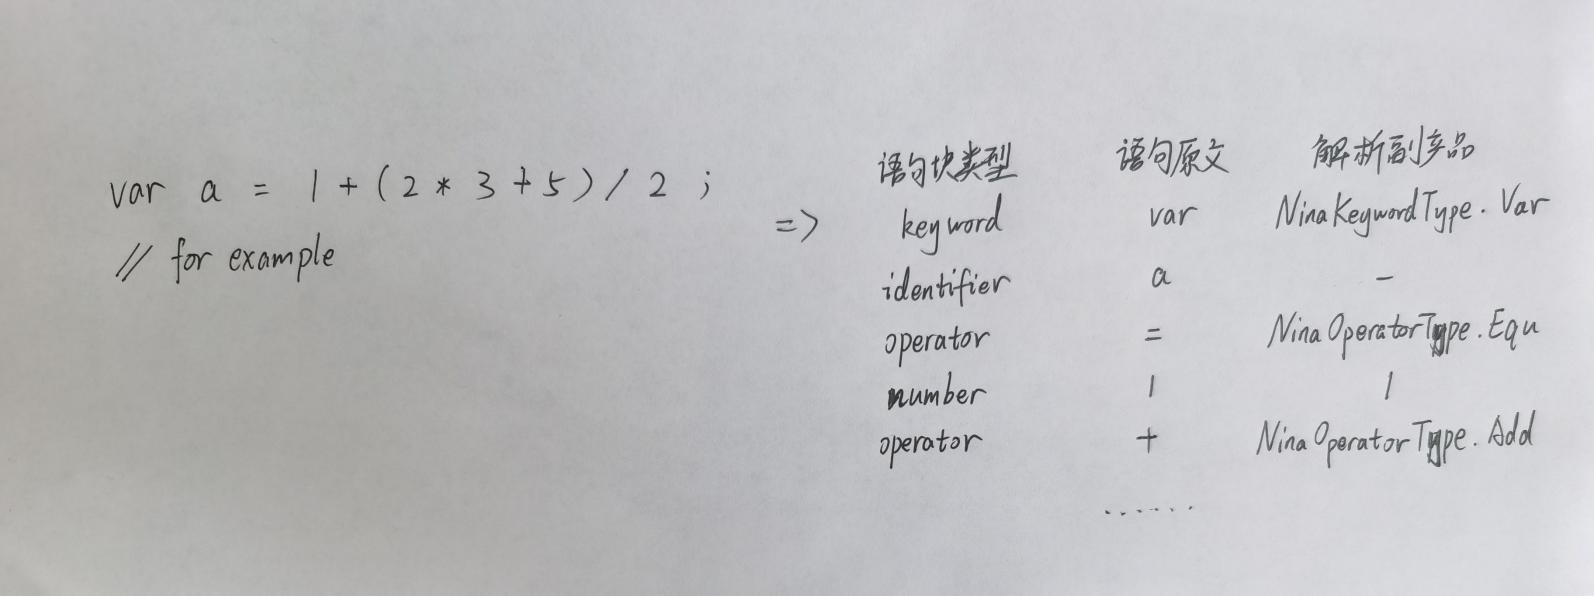 var a = 1 + ( 2 * 3 + 5 ) / 2 ;
// for example
=>
语句块类型 语句原文 解析副产品
keyword var NinaKeywordType.Var
identifier a -
operator = NinaOperatorType.Equ
number 1 1
operator + NinaOperatorType.Add
......